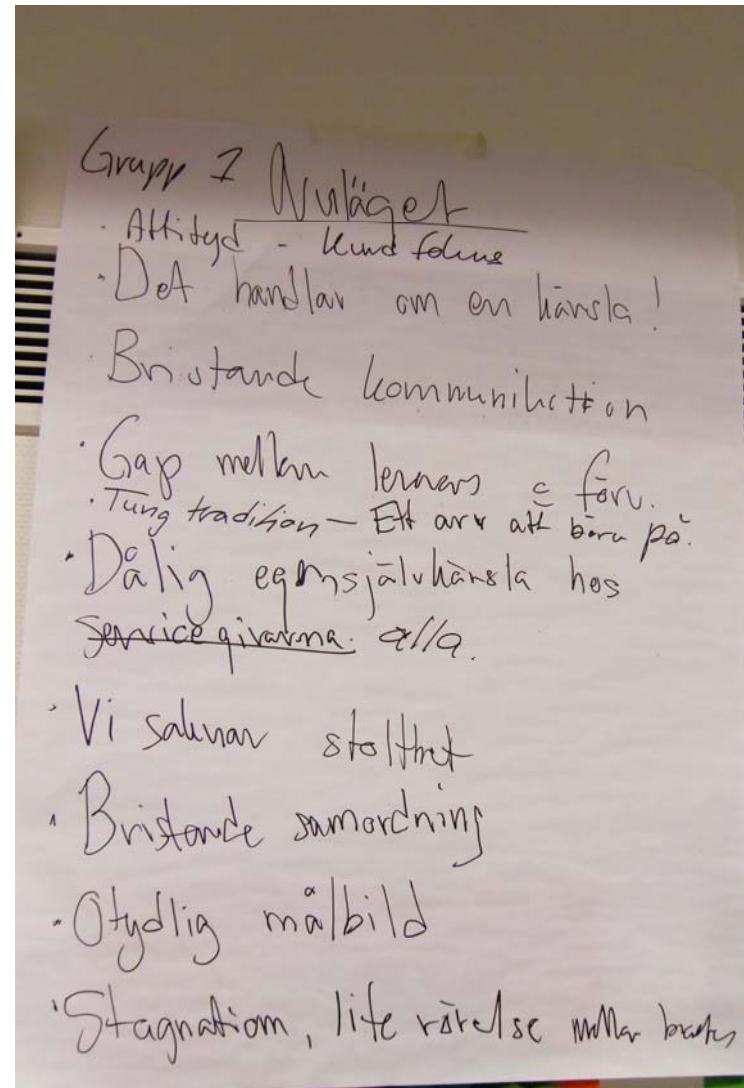 Grupp 1 Nuläget
· Attityd - Kund fokus
· Det handlar om en känsla!
· Bristande kommunikation
· Gap mellan lerners & förv.
· Tung tradition — Ett arv att bära på.
· Dålig egensjälvkänsla hos
servicegivarna. alla.
· Vi saknar stolthet
· Bristande samordning
· Otydlig målbild
· Stagnation, lite rörelse mellan